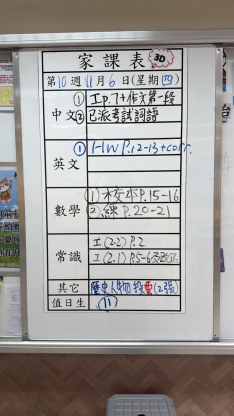 家課表 3D
第10週11月6日(星期四)
中文
① 工p.7+作文第一段
② 已派考試詞語
英文
① HW P.12-13+corr.
數學
① 校本P.15-16
② 練P.20-21
常識
工(2.2) P.2
工(2.1) P.5-6
其它
歷史人物投票(2張)
值日生
11